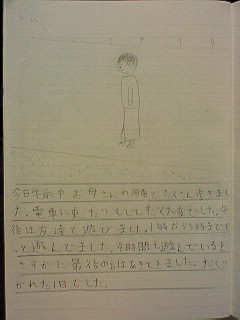 今日午前中お母さんの用事でたくさん歩きまし
た。電車に乗ったりもしして大変でした。午
後は友達と遊びました。1時から5時までず
っと遊んでました。4時間も遊んでいると
さすがに最後の方は
きました。
かれた1日でした。